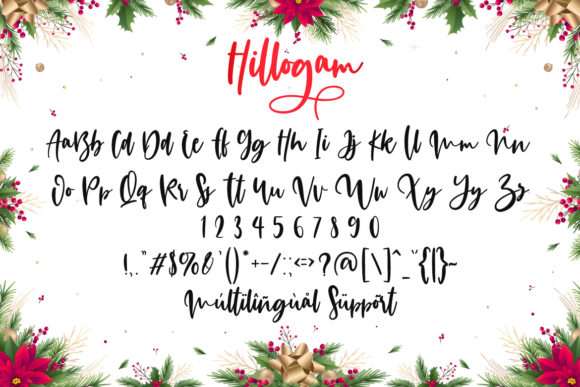 Hillogam
AaBb Cd Dd Ee ff Gg Hh Ii Jj Kk Ll Mm Nn
Oo Pp Qq Rr Ss Tt Uu Vv Ww Xy Yy Zz
1 2 3 4 5 6 7 8 9 0
!,."#$%&'()*+-/:;<=>?@[\]^_"{|}~
Múltilîñgüàl Süppört